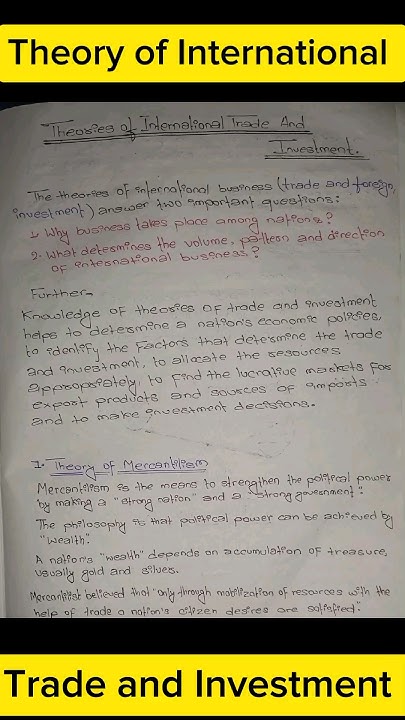 Theory of International
Theories of International Trade And
Investment.
The theories of international business (trade and foreign
investment) answer two important questions:
1. Why business takes place among nations?
2. What determines the volume, pattern and direction
of international business?
Further-
Knowledge of theories of trade and investment
helps to determine a nation's economic policies,
to identify the factors that determine the trade
and investment, to allocate the resources
appropriately, to find the lucrative markets for
export products and sources of imports
and to make investment decisions.
1. Theory of Mercantilism
Mercantilism is the means to strengthen the political power
by making a "strong nation" and a "strong government".
The philosophy is that political power can be achieved by
"wealth".
A nation's "wealth" depends on accumulation of treasure,
usually gold and silver.
Mercantilist believed that "only through mobilization of resources with the
help of trade a nation's citizen desires are satisfied".
Trade and Investment